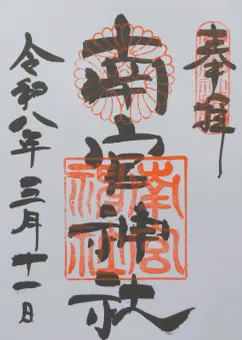 奉拝
南宮神社
南宮
神社
令和八年三月十一日